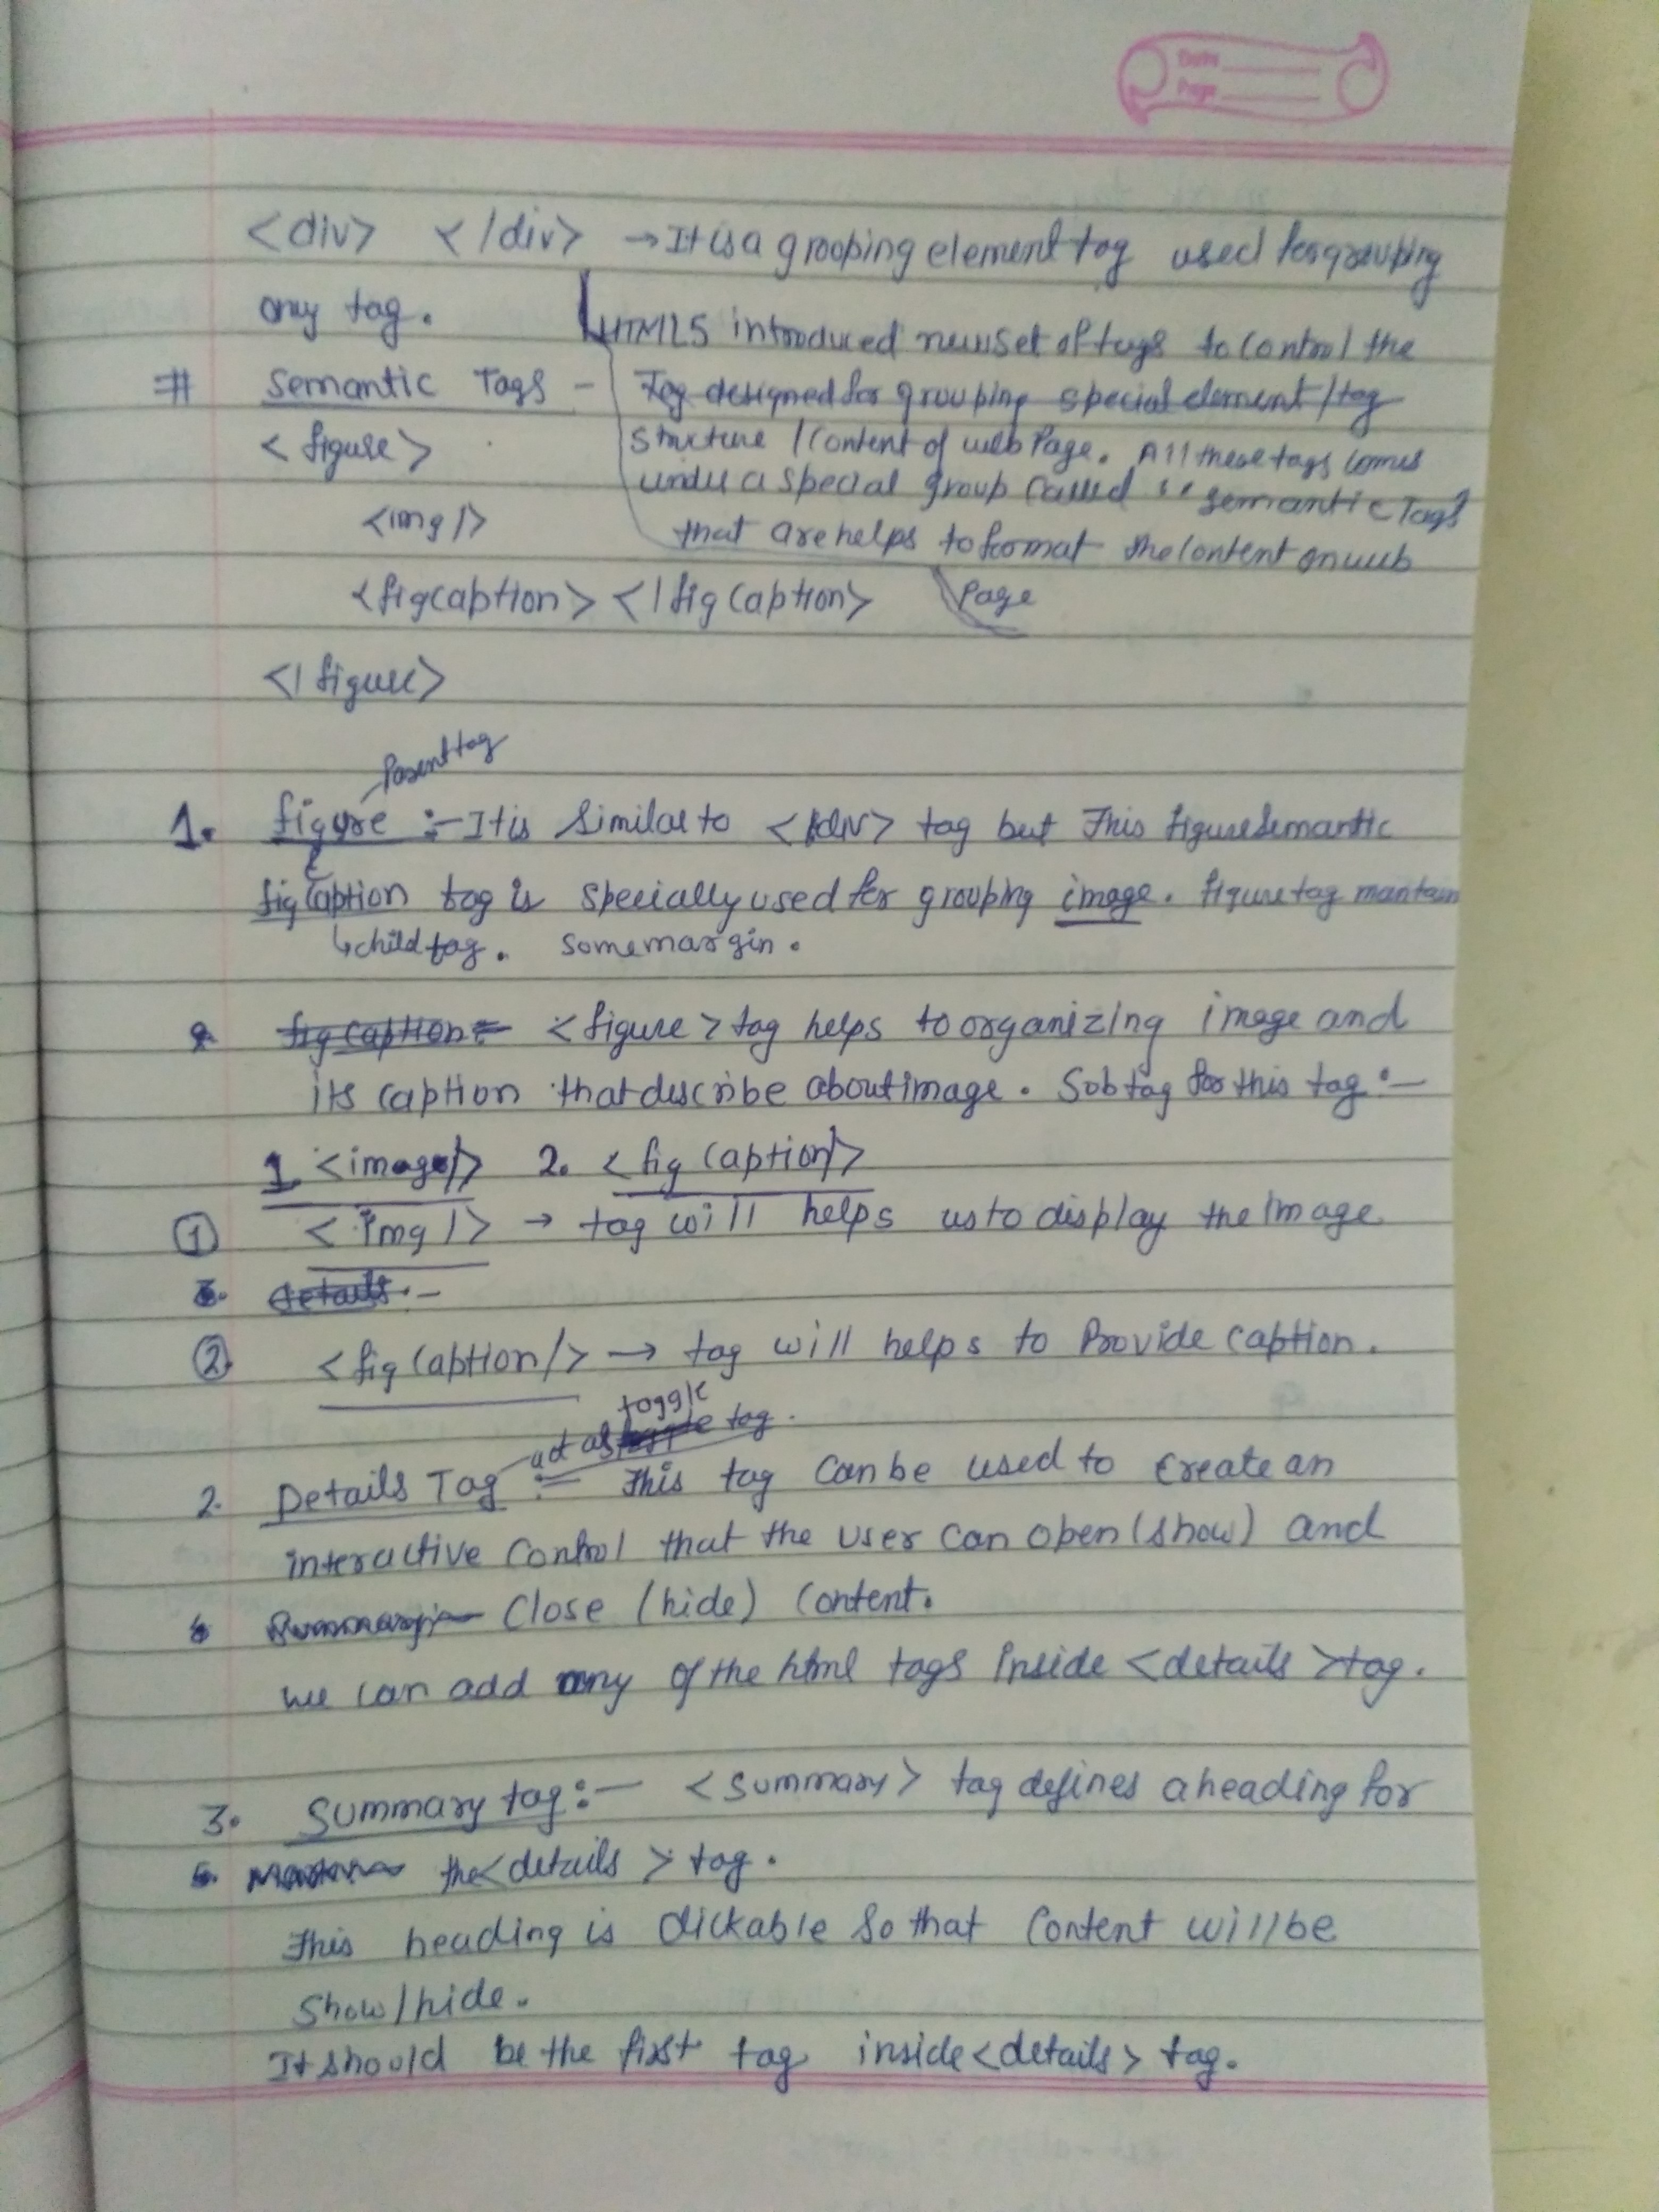 Date
Page
<div> </div> → It is a grooping element tag used for grouping
any tag.
HTML5 introduced new set of tags to control the
# Semantic Tags - Tag designed for grouping special element/tag
<figure>
structure / content of web Page. All these tags comes
under a special group called "semantic Tags
<img/>
that are helps to format the content on web
<figcaption> </figcaption> Page
</figure>
Parent tag
1. figure :- It is similar to <div> tag but This figure semantic
figcaption tag is specially used for grouping image. figure tag mantain
↳ child tag. some margin.
figcaption <figure> tag helps to organizing image and
its caption that describe about image. Sub tag for this tag :-
1. <image/> 2. <figcaption/>
① <img/> → tag will helps us to display the Image
details :-
② <figcaption/> → tag will helps to Provide caption.
toggle
act as tag.
2. Details Tag :- This tag can be used to create an
interactive control that the user can open (show) and
Summary Close (hide) content.
we can add any of the html tags inside <details> tag.
3. Summary tag :- <summary> tag defines a heading for
5. the <details> tag.
This heading is clickable so that content will be
Show/hide.
It should be the first tag inside <details> tag.